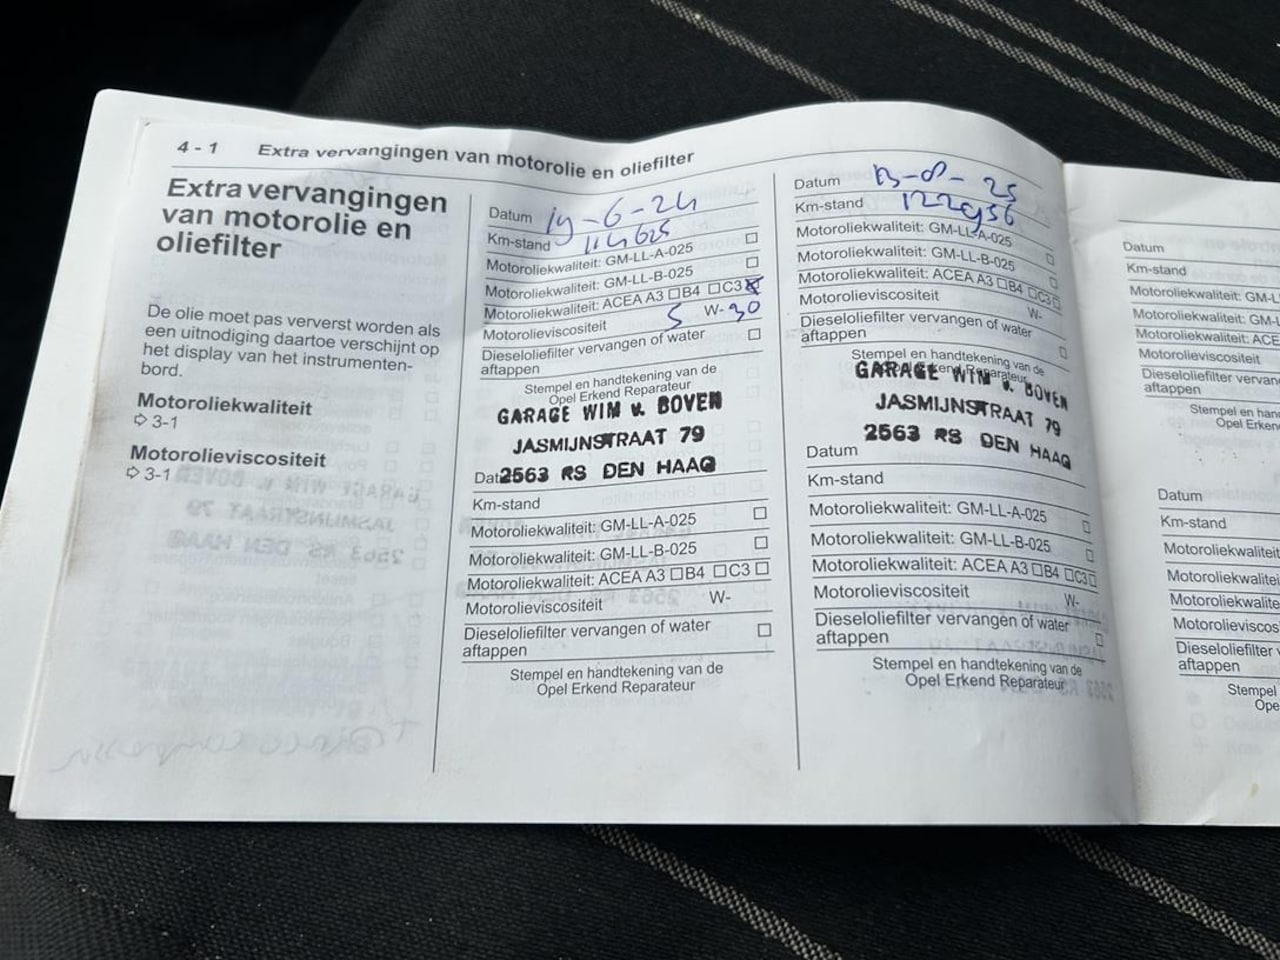 4 - 1 Extra vervangingen van motorolie en oliefilter
Extra vervangingen
van motorolie en
oliefilter
De olie moet pas ververst worden als
een uitnodiging daartoe verschijnt op
het display van het instrumenten-
bord.
Motoroliekwaliteit
⇨ 3-1
Motorolieviscositeit
⇨ 3-1
Datum 19-6-24
Km-stand 114625
Motoroliekwaliteit: GM-LL-A-025 □
Motoroliekwaliteit: GM-LL-B-025 □
Motoroliekwaliteit: ACEA A3 □B4 □C3
Motorolieviscositeit 5 W-30
Dieseloliefilter vervangen of water □
aftappen
Stempel en handtekening van de
Opel Erkend Reparateur
GARAGE WIM v. BOVEN
JASMIJNSTRAAT 79
2563 RS DEN HAAG
Km-stand
Motoroliekwaliteit: GM-LL-A-025 □
Motoroliekwaliteit: GM-LL-B-025 □
Motoroliekwaliteit: ACEA A3 □B4 □C3 □
Motorolieviscositeit W-
Dieseloliefilter vervangen of water □
aftappen
Stempel en handtekening van de
Opel Erkend Reparateur
Datum 13-8-25
Km-stand 122956
Motoroliekwaliteit: GM-LL-A-025 □
Motoroliekwaliteit: GM-LL-B-025 □
Motoroliekwaliteit: ACEA A3 □B4 □C3□
Motorolieviscositeit W-
Dieseloliefilter vervangen of water □
aftappen
Stempel en handtekening van de
Erkend Reparateur
GARAGE WIM v. BOVEN
JASMIJNSTRAAT 79
2563 RS DEN HAAG
Datum
Km-stand
Motoroliekwaliteit: GM-LL-A-025 □
Motoroliekwaliteit: GM-LL-B-025 □
Motoroliekwaliteit: ACEA A3 □B4 □C3□
Motorolieviscositeit W-
Dieseloliefilter vervangen of water □
aftappen
Stempel en handtekening van de
Opel Erkend Reparateur
Datum
Km-stand
Motoroliekwaliteit: GM-L
Motoroliekwaliteit: GM-L
Motoroliekwaliteit: ACE
Motorolieviscositeit
Dieseloliefilter vervan
aftappen
Stempel en han
Opel Erken
Datum
Km-stand
Motoroliekwalitei
Motoroliekwalitei
Motoroliekwalite
Motorolieviscos
Dieseloliefilter v
aftappen
Stempel
Ope